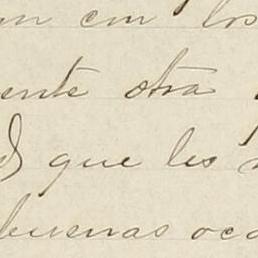 con los
ente otra
que les
buenas oca